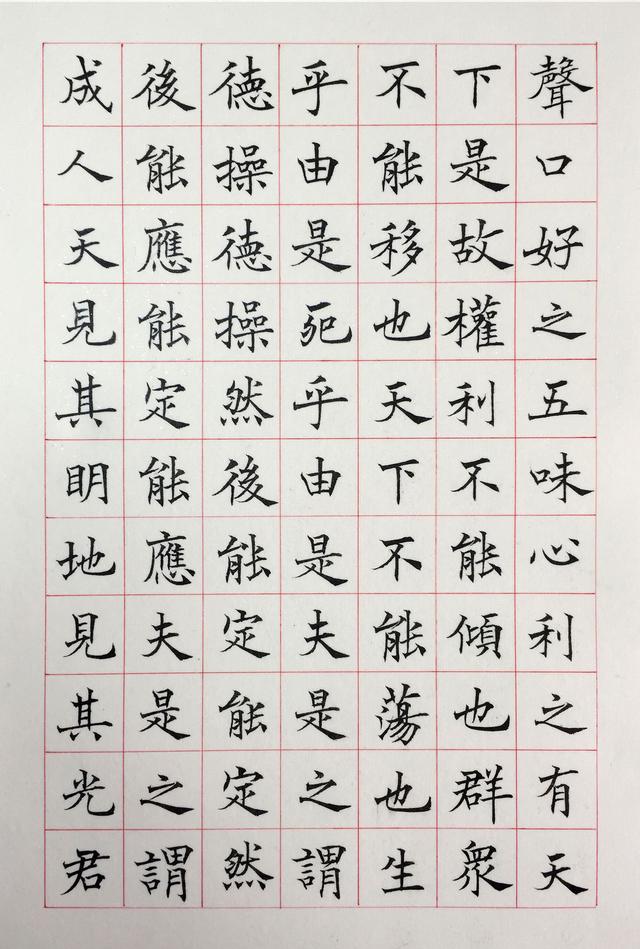 聲口好之五味心利之有天
下是故權利不能傾也群衆
不能移也天下不能蕩也生
乎由是死乎由是夫是之謂
德操德操然後能定能定然
後能應能定能應夫是之謂
成人天見其明地見其光君